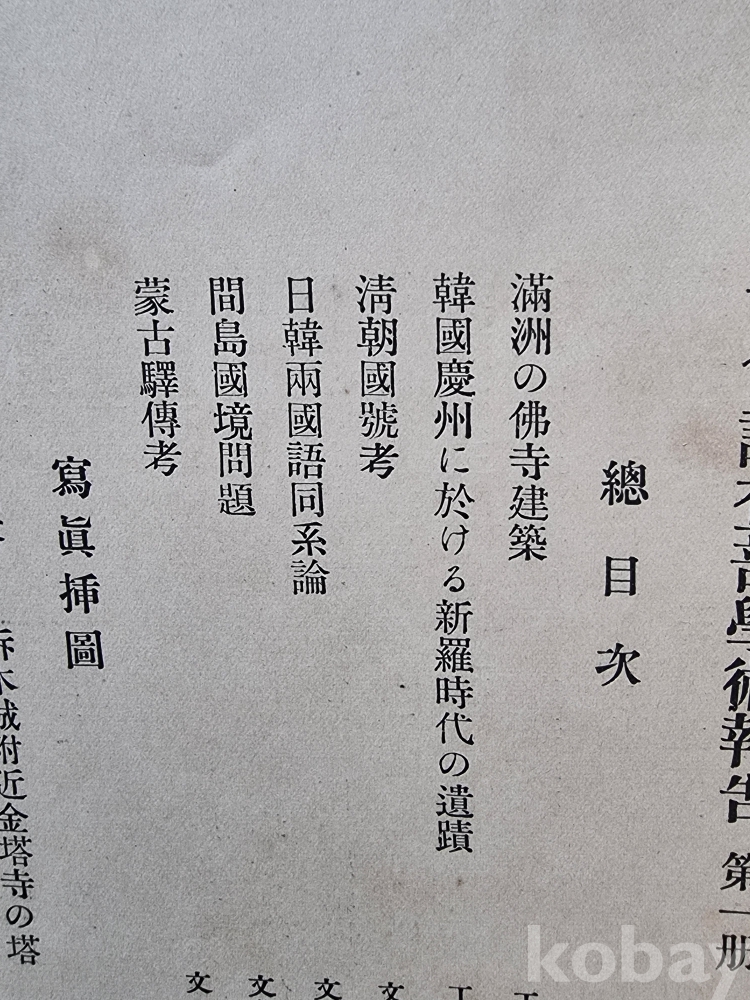 學術報告 第一册
總目次
滿洲の佛寺建築
韓國慶州に於ける新羅時代の遺蹟
淸朝國號考
日韓兩國語同系論
間島國境問題
蒙古驛傳考
寫眞揷圖
木城附近金塔寺の塔
文
文
文
文
kobay